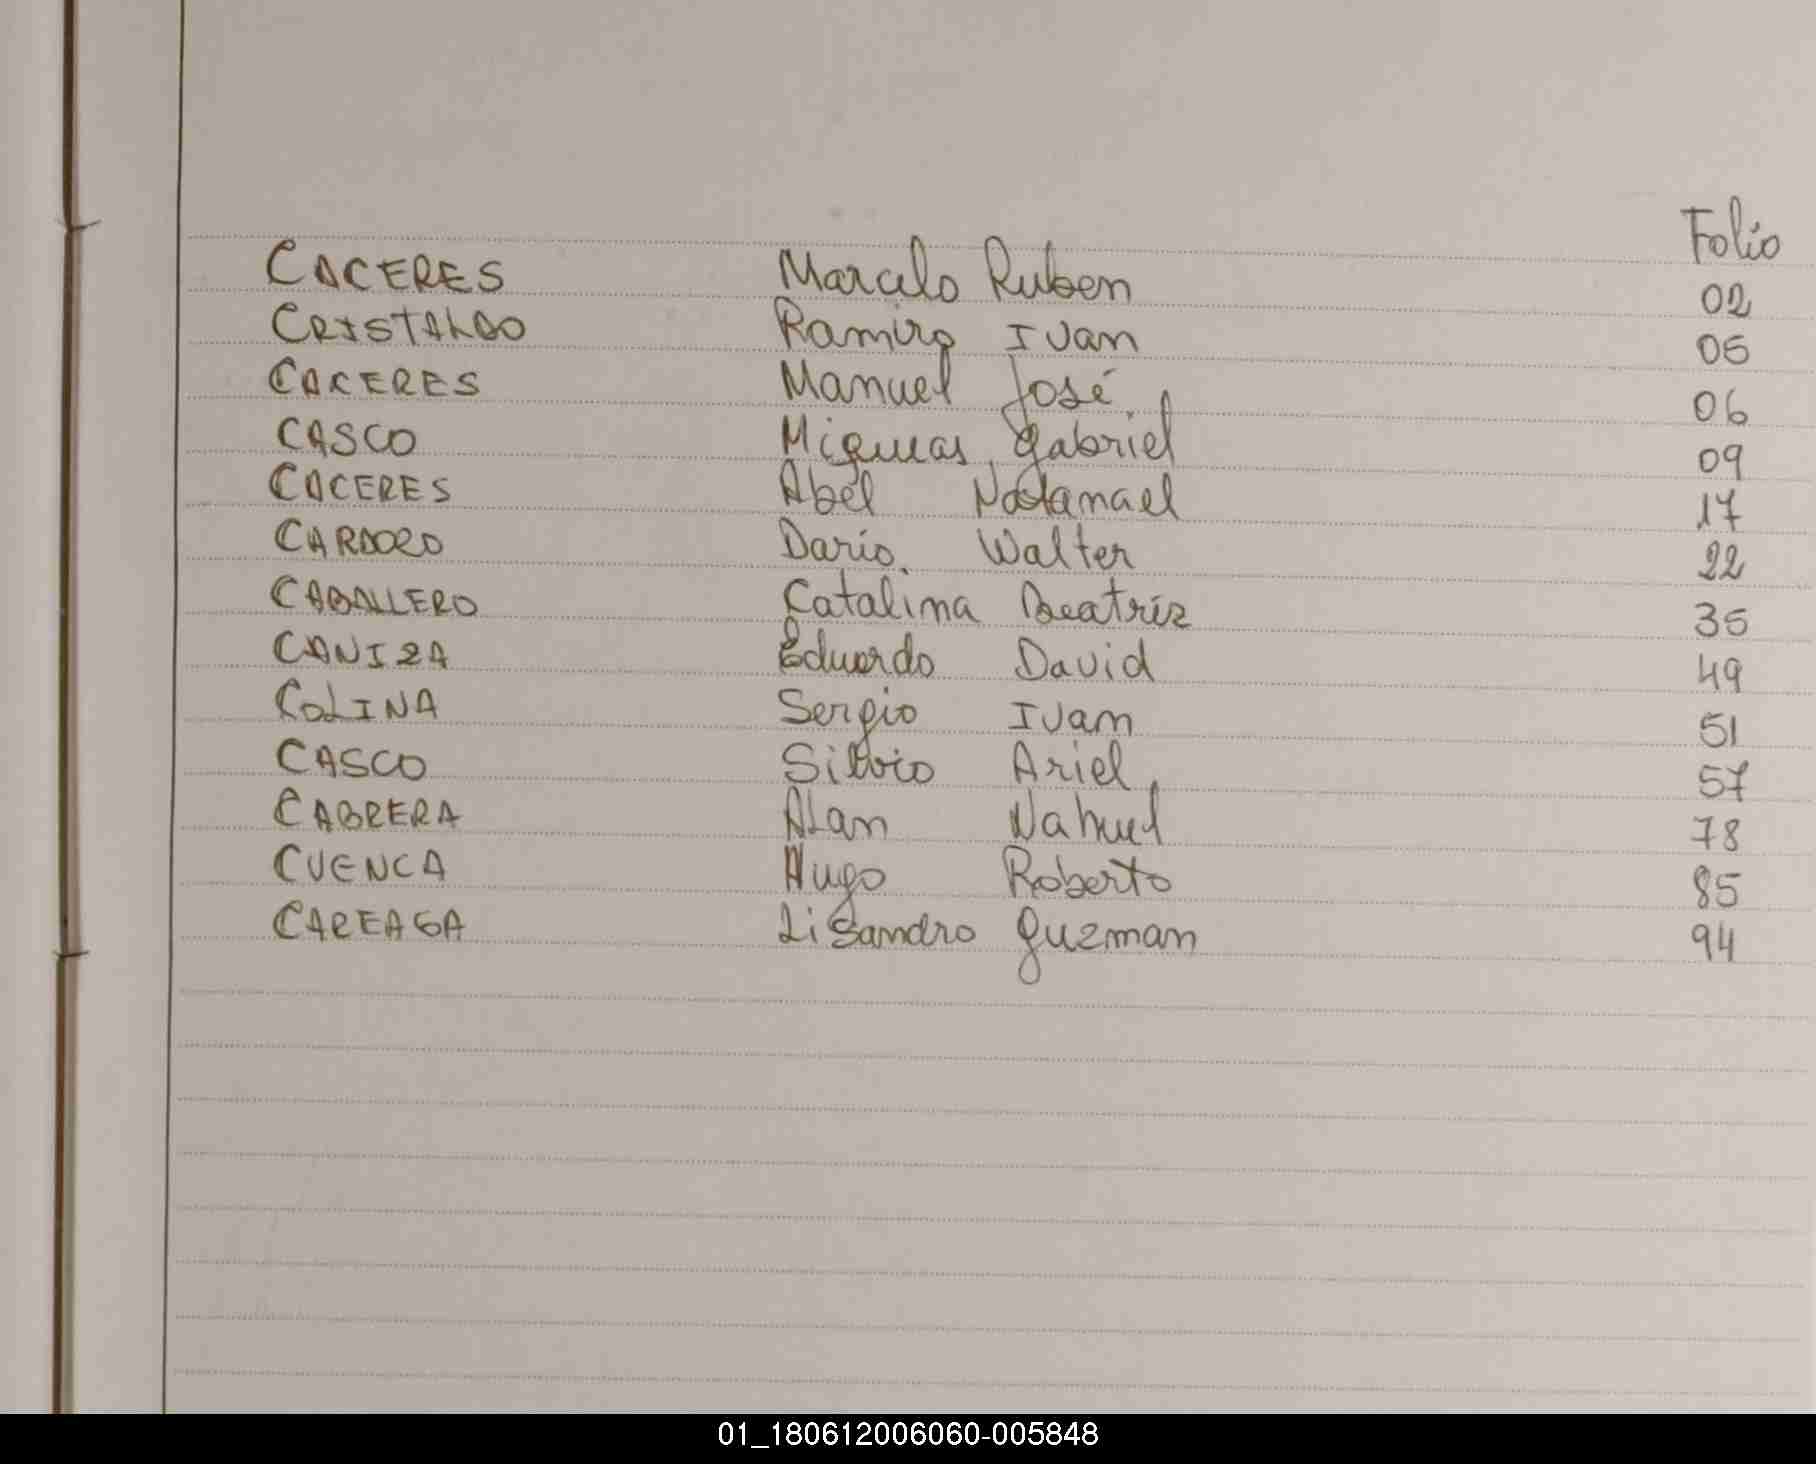 Folio
CACERES Marcelo Ruben 02
CRISTALDO Ramiro Ivan 05
CACERES Manuel José 06
CASCO Miqueas Gabriel 09
CACERES Abel Natanael 17
CARDOZO Dario Walter 22
CABALLERO Catalina Beatriz 35
CANIZA Eduardo David 49
COLINA Sergio Ivan 51
CASCO Silvio Ariel 57
CABRERA Alan Nahuel 78
CUENCA Hugo Roberto 85
CAREAGA Lisandro Guzman 94
01_180612006060-005848